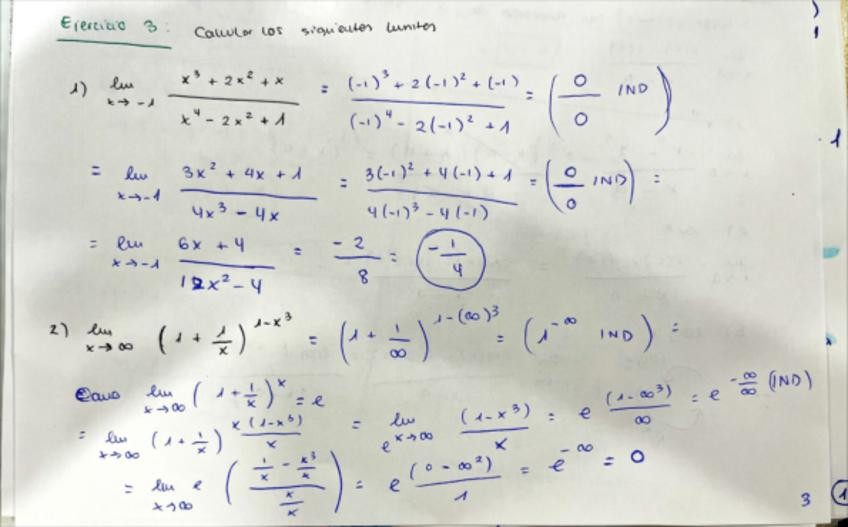 Ejercicio 3: Calcular los siguientes limites
1) lim x→-1 (x³ + 2x² + x)/(x⁴ - 2x² + 1) = ((-1)³ + 2(-1)² + (-1))/((-1)⁴ - 2(-1)² + 1) = (0/0 IND)
= lim x→-1 (3x² + 4x + 1)/(4x³ - 4x) = (3(-1)² + 4(-1) + 1)/(4(-1)³ - 4(-1)) = (0/0 IND) =
= lim x→-1 (6x + 4)/(12x² - 4) = -2/8 = -1/4
2) lim x→∞ (1 + 1/x)^(1-x³) = (1 + 1/∞)^(1-(∞)³) = (1^-∞ IND) =
Como lim x→∞ (1 + 1/x)^x = e
= lim x→∞ (1 + 1/x)^(x(1-x³)/x) = e^(lim x→∞ (1-x³)/x) = e^((1-∞³)/∞) = e^(-∞/∞) (IND)
= lim x→∞ e^((1/x - x³/x)/(x/x)) = e^((0-∞²)/1) = e^-∞ = 0
3 1